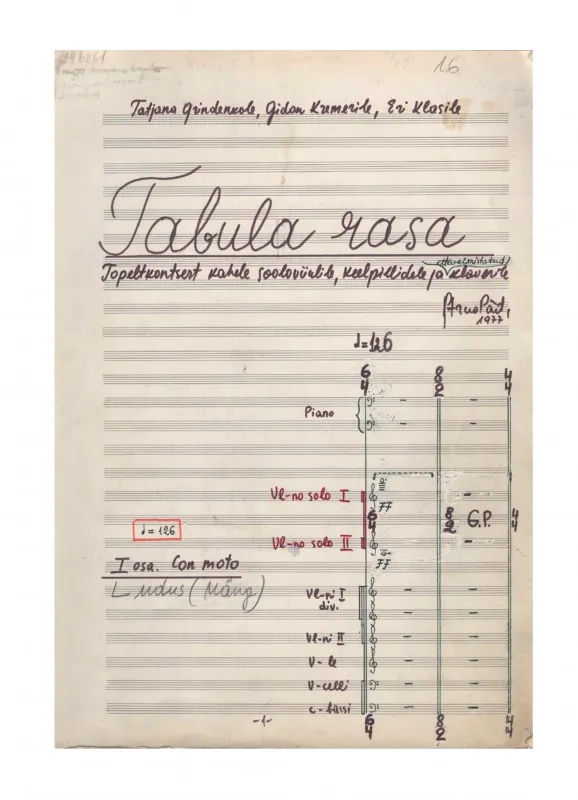 16
Tatjana Grindenkole, Gidon Kremerile, Eri Klasile
Tabula rasa
Topeltkontsert kahele sooloviiulile, keelpillidele ja klaverile
Arvo Pärt,
1977
♩=126
6 8 4
4 2 4
Piano
Vl-no solo I
ff
6 8 4
4 2 4
G.P.
♩= 126
Vl-no solo II
ff
I osa. Con moto
Ludus (Mäng)
Vl-ni I
div.
Vl-ni II
V-le
V-celli
C-bassi
-1-
6 8 4
4 2 4